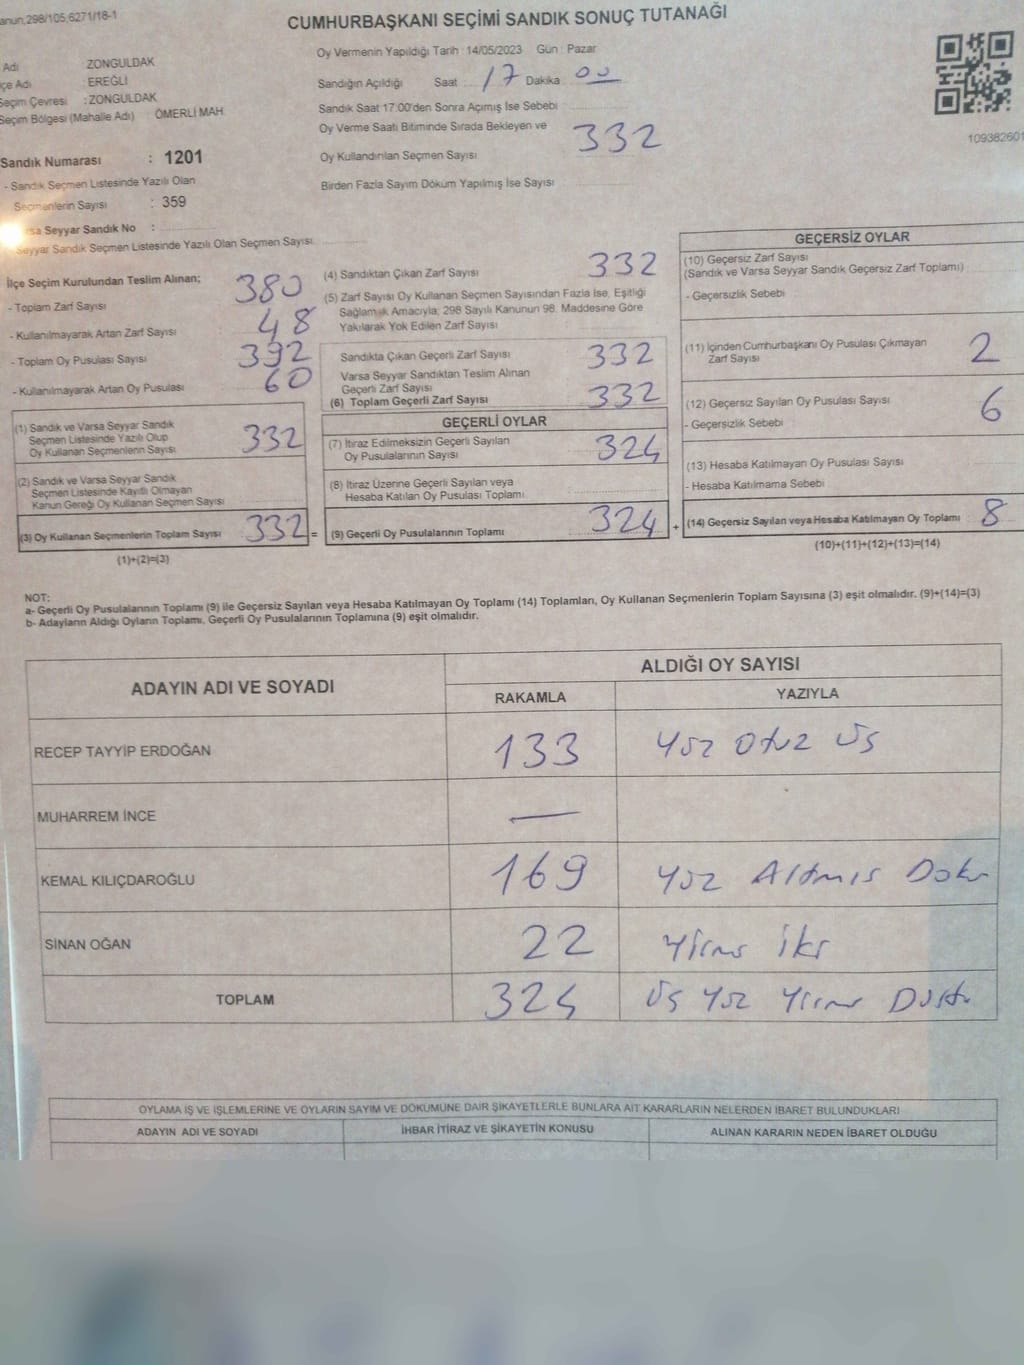 anun,298/105,6271/18-1
CUMHURBAŞKANI SEÇİMİ SANDIK SONUÇ TUTANAĞI
Adı : ZONGULDAK
çe Adı : EREĞLİ
Seçim Çevresi : ZONGULDAK
Seçim Bölgesi (Mahalle Adı) : ÖMERLİ MAH
Sandık Numarası : 1201
- Sandık Seçmen Listesinde Yazılı Olan
Seçmenlerin Sayısı : 359
rsa Seyyar Sandık No :
Seyyar Sandık Seçmen Listesinde Yazılı Olan Seçmen Sayısı
Oy Vermenin Yapıldığı Tarih : 14/05/2023 Gün : Pazar
Sandığın Açıldığı Saat : 17 Dakika 00
Sandık Saat 17:00'den Sonra Açımış İse Sebebi
Oy Verme Saati Bitiminde Sırada Bekleyen ve
Oy Kullandırılan Seçmen Sayısı 332
Birden Fazla Sayım Döküm Yapılmış İse Sayısı
109382601
İlçe Seçim Kurulundan Teslim Alınan;
- Toplam Zarf Sayısı 380
- Kullanılmayarak Artan Zarf Sayısı 48
- Toplam Oy Pusulası Sayısı 392
- Kullanılmayarak Artan Oy Pusulası 60
(1) Sandık ve Varsa Seyyar Sandık
Seçmen Listesinde Yazılı Olup
Oy Kullanan Seçmenlerin Sayısı 332
(2) Sandık ve Varsa Seyyar Sandık
Seçmen Listesinde Kayıtlı Olmayan
Kanun Gereği Oy Kullanan Seçmen Sayısı
(3) Oy Kullanan Seçmenlerin Toplam Sayısı 332 =
(1)+(2)=(3)
(4) Sandıktan Çıkan Zarf Sayısı 332
(5) Zarf Sayısı Oy Kullanan Seçmen Sayısından Fazla İse, Eşitliği
Sağlamak Amacıyla; 298 Sayılı Kanunun 98. Maddesine Göre
Yakılarak Yok Edilen Zarf Sayısı
Sandıkta Çıkan Geçerli Zarf Sayısı 332
Varsa Seyyar Sandıktan Teslim Alınan
Geçerli Zarf Sayısı
(6) Toplam Geçerli Zarf Sayısı 332
GEÇERLİ OYLAR
(7) İtiraz Edilmeksizin Geçerli Sayılan
Oy Pusulalarının Sayısı 324
(8) İtiraz Üzerine Geçerli Sayılan veya
Hesaba Katılan Oy Pusulası Toplamı
(9) Geçerli Oy Pusulalarının Toplamı 324 +
GEÇERSİZ OYLAR
(10) Geçersiz Zarf Sayısı
(Sandık ve Varsa Seyyar Sandık Geçersiz Zarf Toplamı)
- Geçersizlik Sebebi
(11) İçinden Cumhurbaşkanı Oy Pusulası Çıkmayan
Zarf Sayısı 2
(12) Geçersiz Sayılan Oy Pusulası Sayısı 6
- Geçersizlik Sebebi
(13) Hesaba Katılmayan Oy Pusulası Sayısı
- Hesaba Katılmama Sebebi
(14) Geçersiz Sayılan veya Hesaba Katılmayan Oy Toplamı 8
(10)+(11)+(12)+(13)=(14)
NOT:
a- Geçerli Oy Pusulalarının Toplamı (9) ile Geçersiz Sayılan veya Hesaba Katılmayan Oy Toplamı (14) Toplamları, Oy Kullanan Seçmenlerin Toplam Sayısına (3) eşit olmalıdır. (9)+(14)=(3)
b- Adayların Aldığı Oyların Toplamı, Geçerli Oy Pusulalarının Toplamına (9) eşit olmalıdır.
ADAYIN ADI VE SOYADI ALDIĞI OY SAYISI
RAKAMLA YAZIYLA
RECEP TAYYİP ERDOĞAN 133 Yüz Otuz Üç
MUHARREM İNCE —
KEMAL KILIÇDAROĞLU 169 Yüz Altmış Doku
SİNAN OĞAN 22 Yirmi iki
TOPLAM 324 Üç Yüz Yirmi Dört
OYLAMA İŞ VE İŞLEMLERİNE VE OYLARIN SAYIM VE DÖKÜMÜNE DAİR ŞİKAYETLERLE BUNLARA AİT KARARLARIN NELERDEN İBARET BULUNDUKLARI
ADAYIN ADI VE SOYADI İHBAR İTİRAZ VE ŞİKAYETİN KONUSU ALINAN KARARIN NEDEN İBARET OLDUĞU